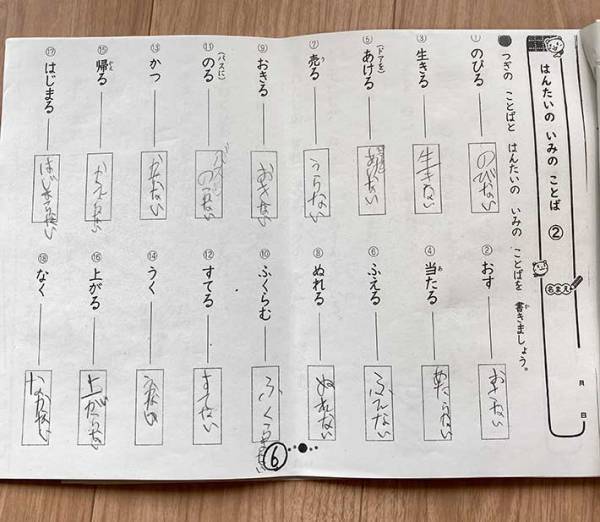 はんたいの いみの ことば ②
名まえ
月 日
●つぎの ことばと はんたいの いみの ことばを 書きましょう。
か
① のびる のびない
② おす おさない
③ 生きる 生きない
い
④ 当たる
あ
⑤ (ドアを) あける
⑥ ふえる ふえない
⑦ 売る うらない
う
⑧ ぬれる ぬれない
⑨ おきる おきない
⑩ ふくらむ ふくらまない
⑪ (バスに) のる のらない
⑫ すてる すてない
⑬ かつ かたない
⑭ うく うかない
⑮ 帰る かえらない
かえ
⑯ 上がる 上がらない
あ
⑰ はじまる はじまらない
⑱ なく なかない
6